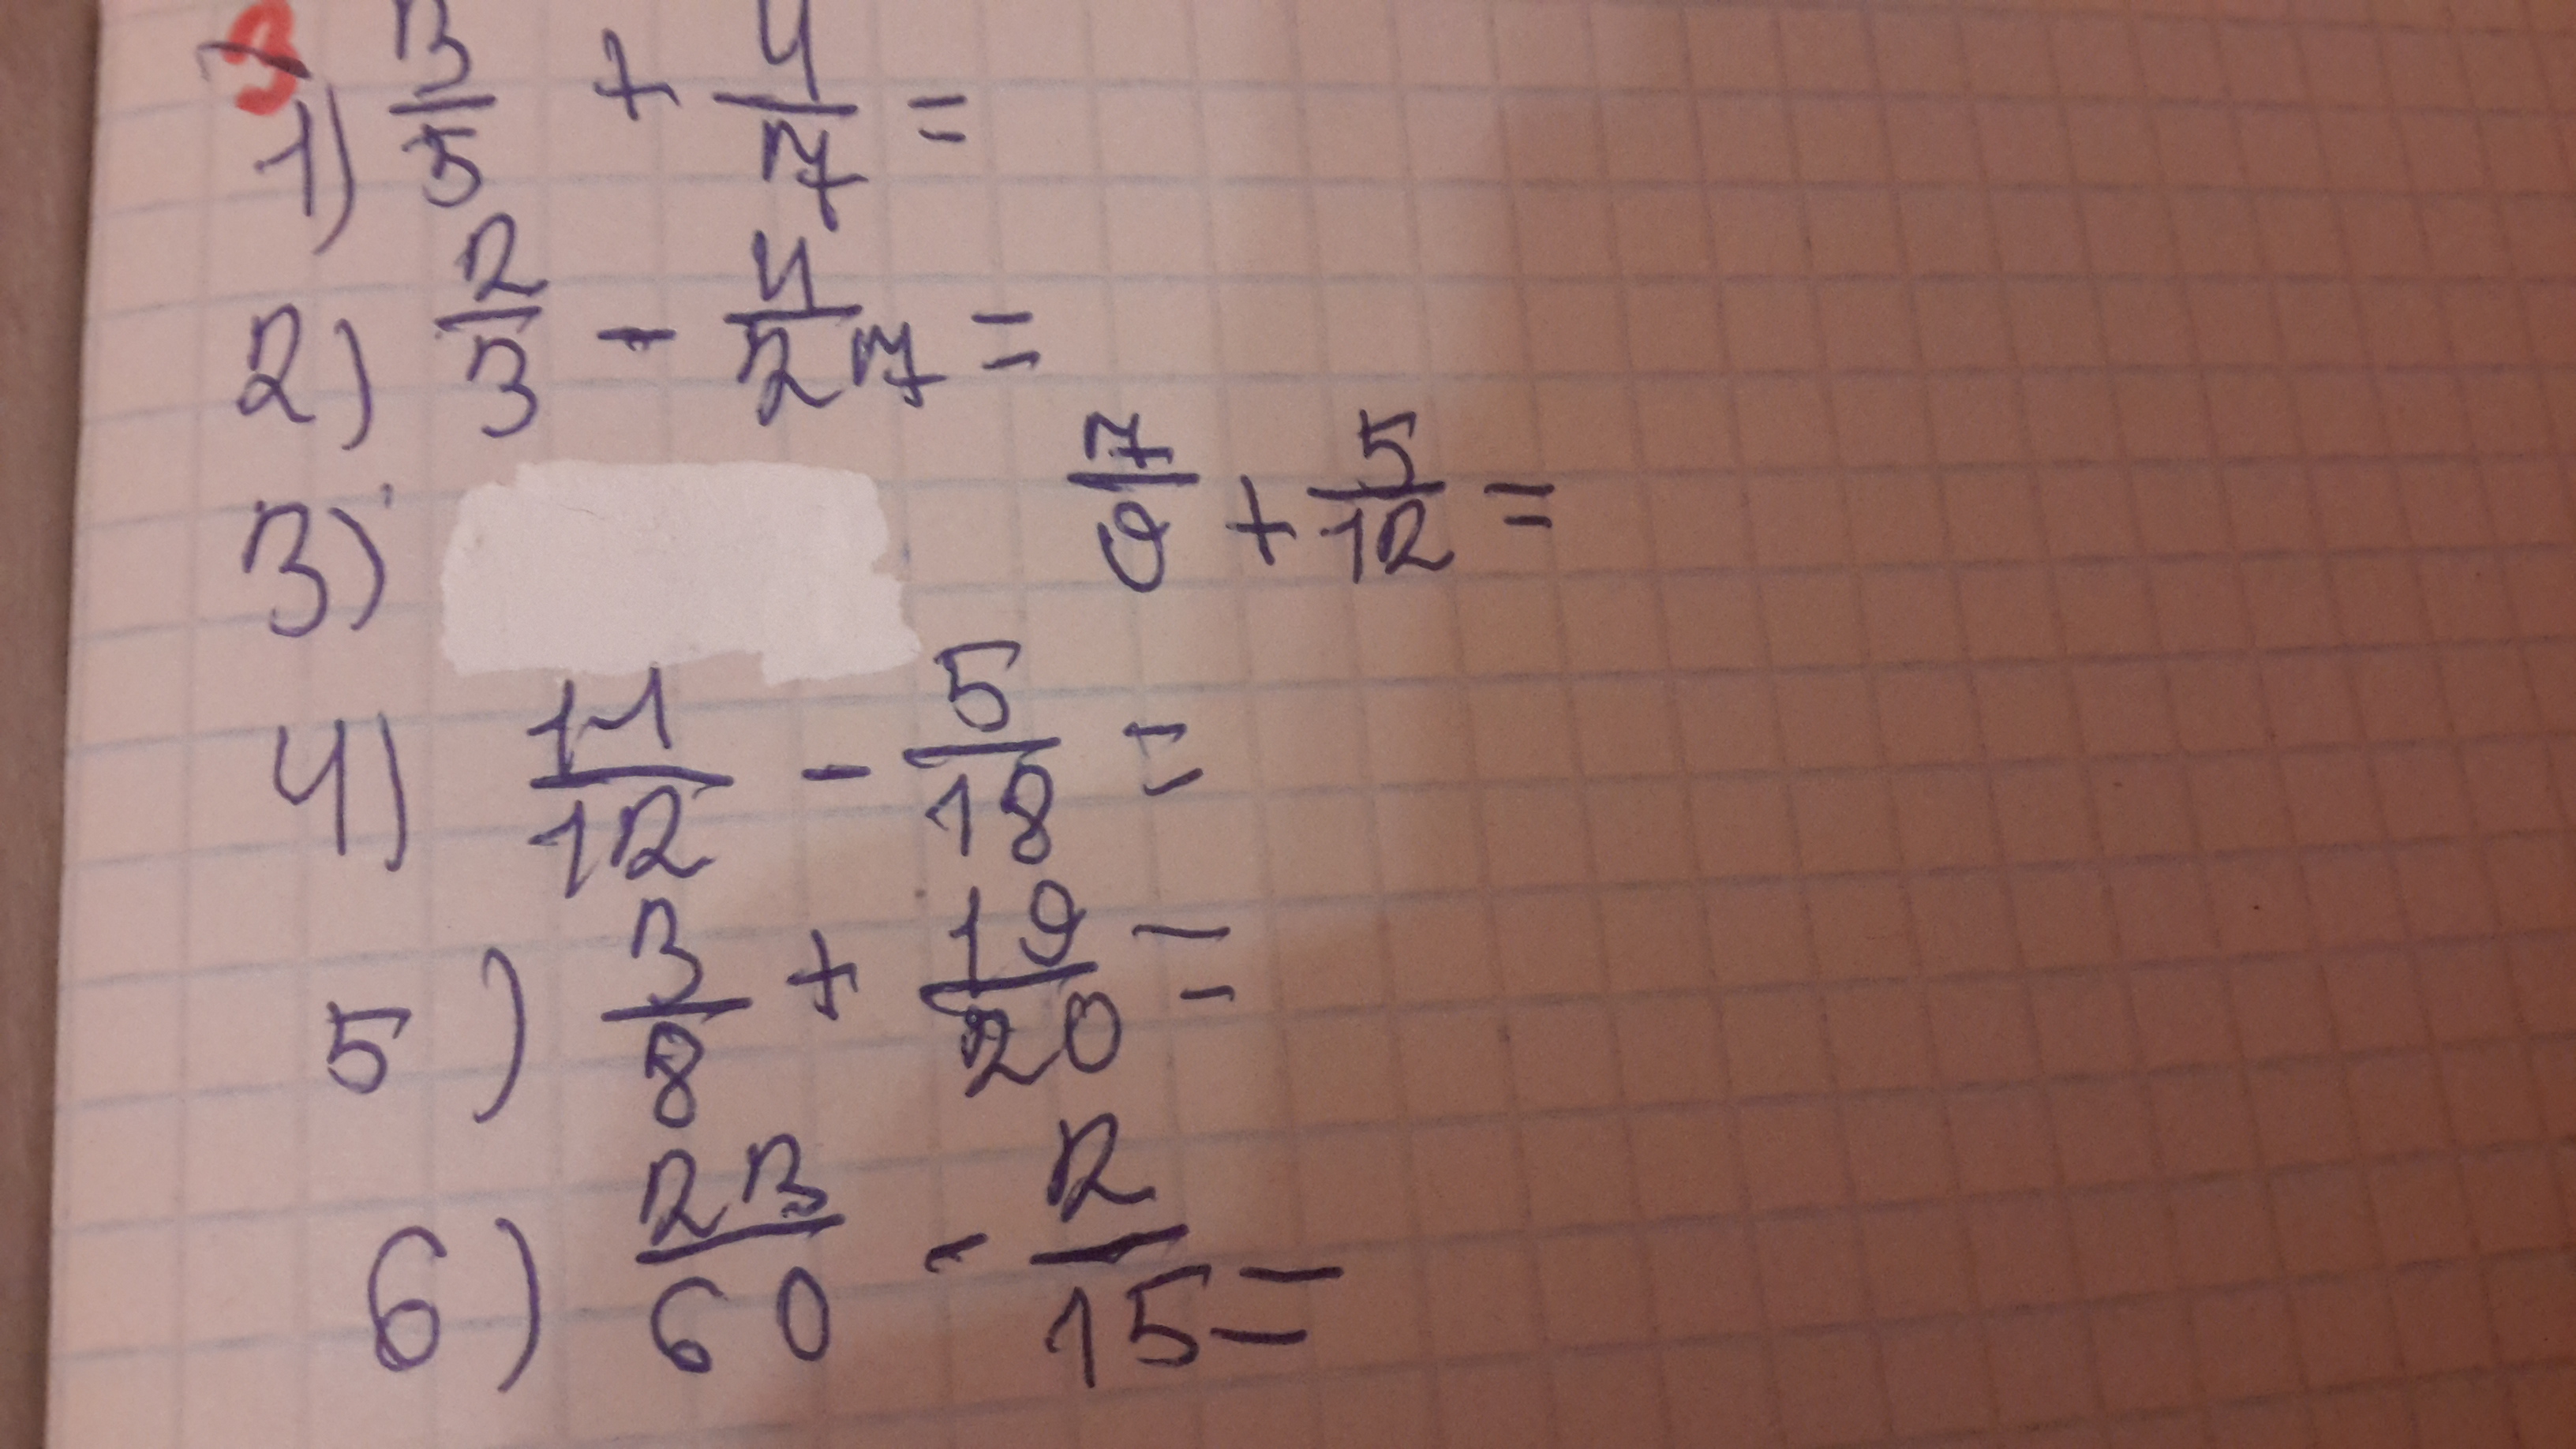 3
1) 3/5 + 4/7 =
2) 2/3 - 4/27 =
3) 7/9 + 5/12 =
4) 11/12 - 5/18 =
5) 3/8 + 19/20 =
6) 23/60 - 2/15 =